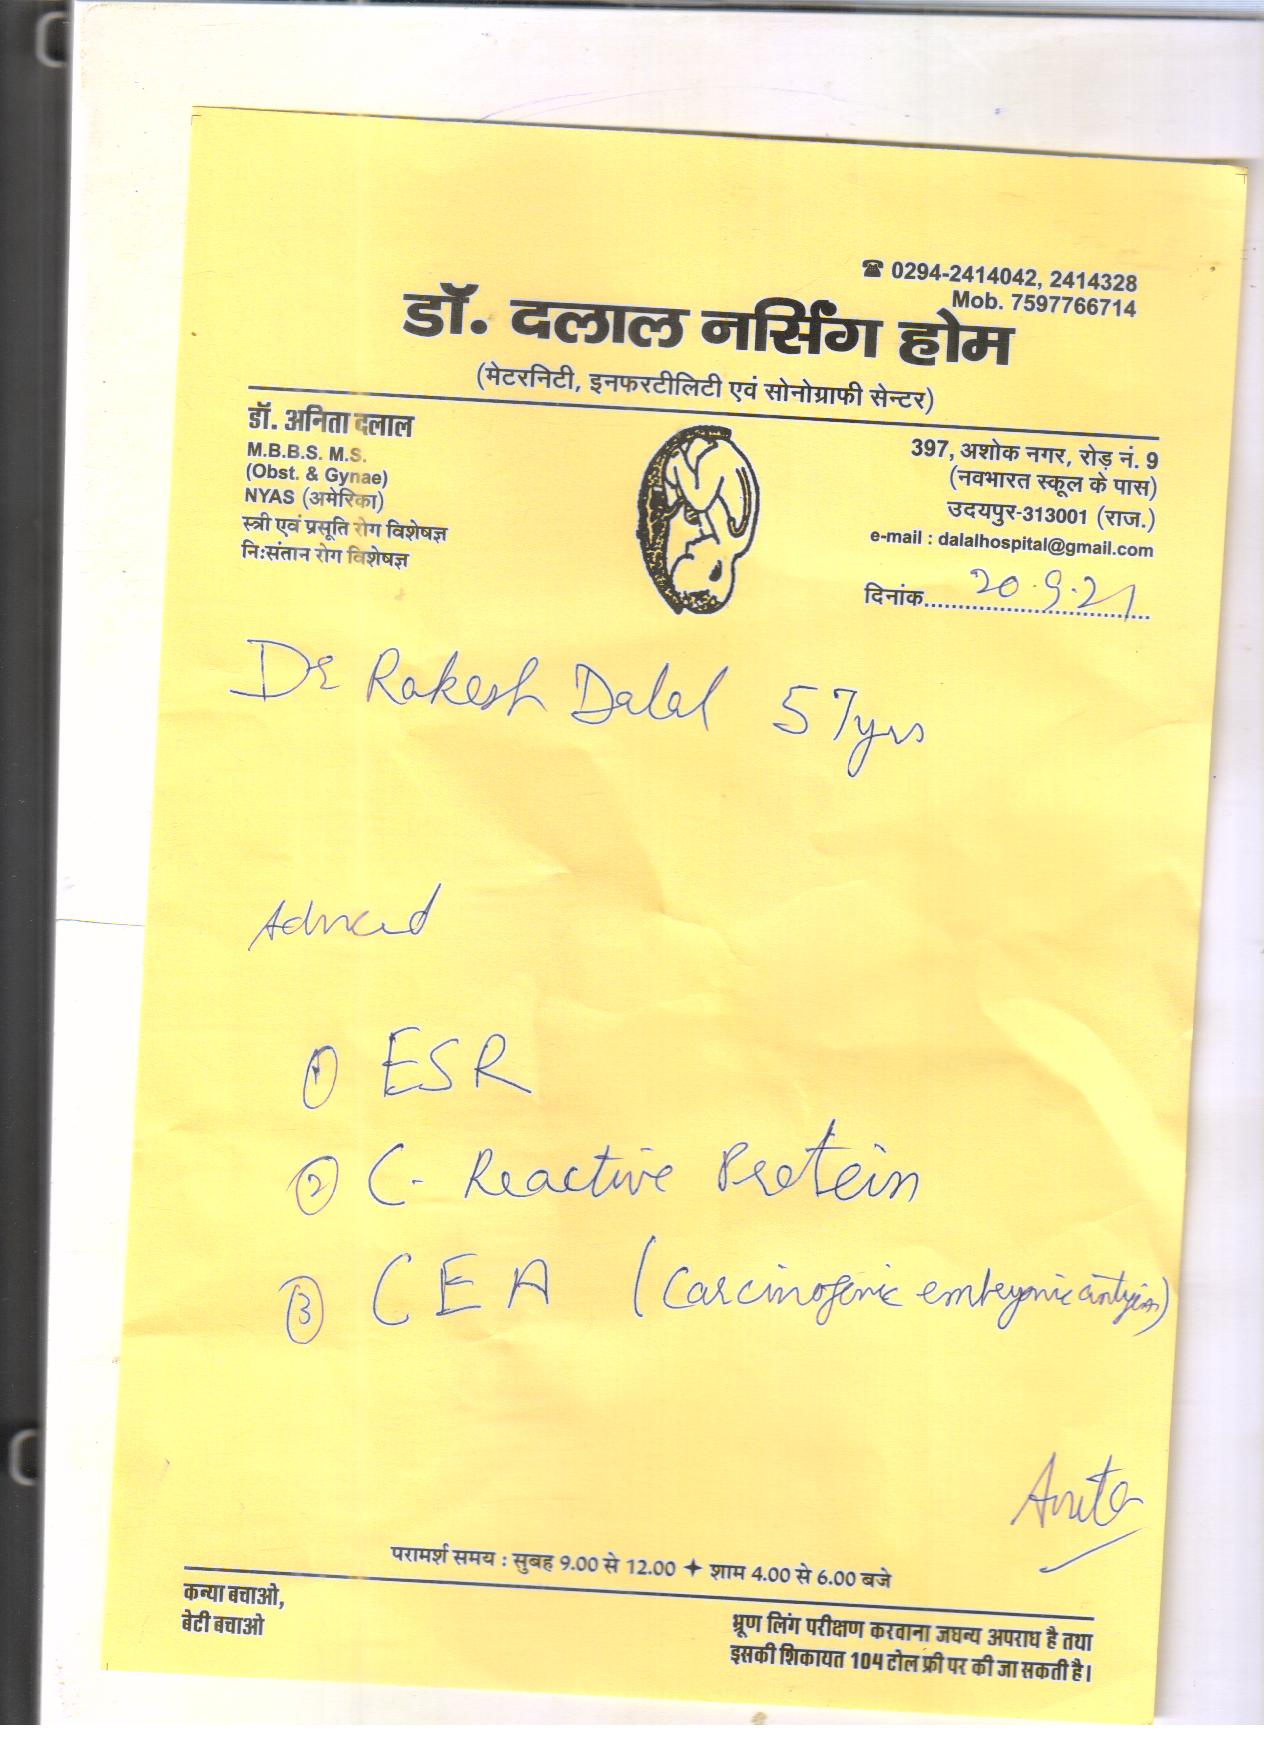 ☎ 0294-2414042, 2414328
Mob. 7597766714
डॉ. दलाल नर्सिंग होम
(मेटरनिटी, इनफरटीलिटी एवं सोनोग्राफी सेन्टर)
डॉ. अनिता दलाल
M.B.B.S. M.S.
(Obst. & Gynae)
NYAS (अमेरिका)
स्त्री एवं प्रसूति रोग विशेषज्ञ
नि:संतान रोग विशेषज्ञ
397, अशोक नगर, रोड़ नं. 9
(नवभारत स्कूल के पास)
उदयपुर-313001 (राज.)
e-mail : dalalhospital@gmail.com
दिनांक 20.9.21
Dr Rakesh Dalal 57yrs
Adviced
1 ESR
2 C- Reactive Protein
3 CEA (Carcinogenic embryonic antigen)
Anita
परामर्श समय : सुबह 9.00 से 12.00 ✦ शाम 4.00 से 6.00 बजे
कन्या बचाओ,
बेटी बचाओ
भ्रूण लिंग परीक्षण करवाना जघन्य अपराध है तथा
इसकी शिकायत 104 टोल फ्री पर की जा सकती है।